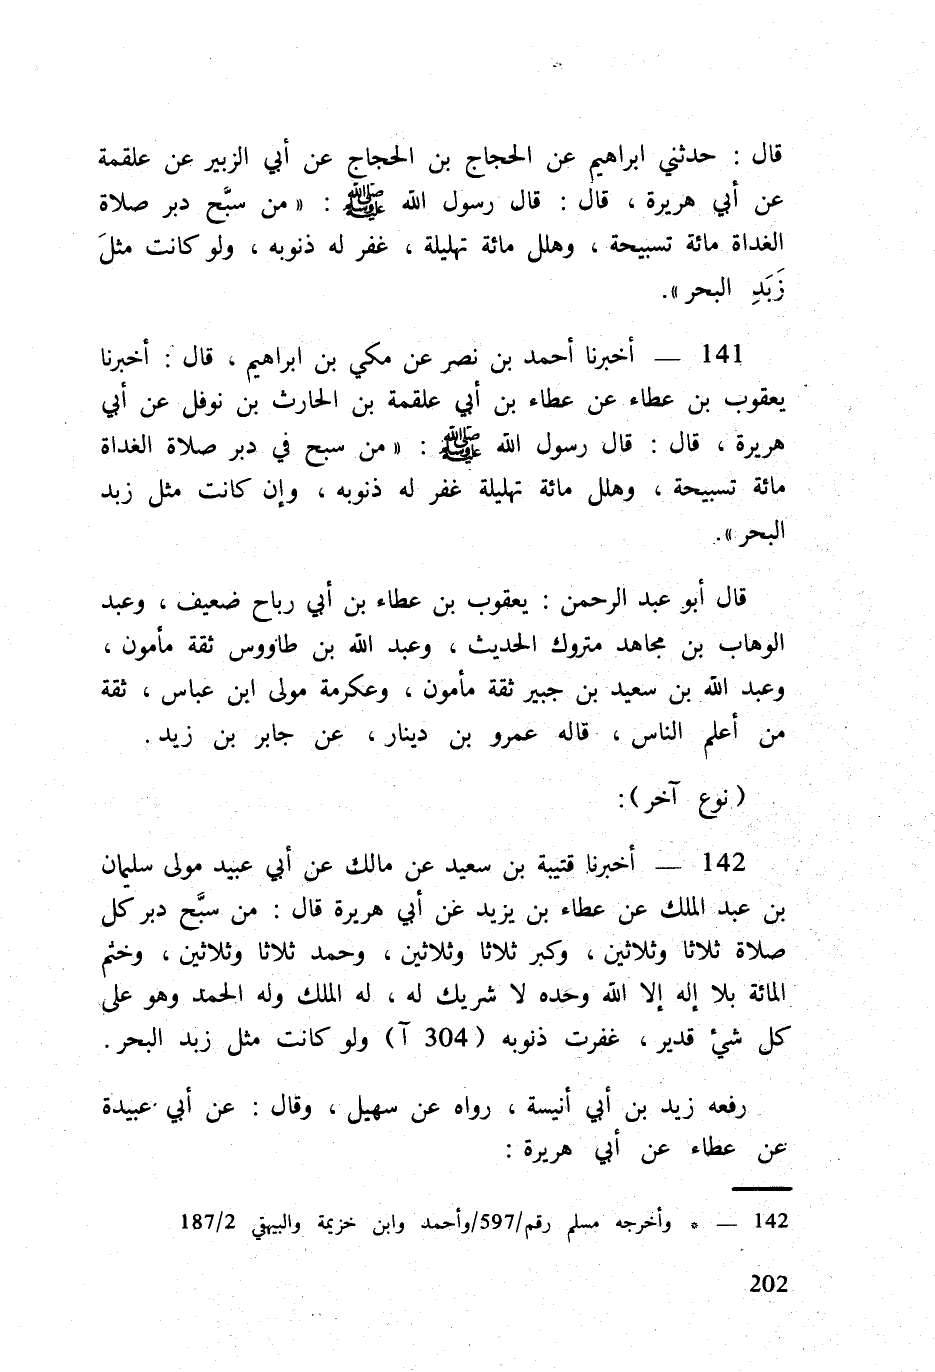 قال : حدثني ابراهيم عن الحجاج بن الحجاج عن أبي الزبير عن علقمة
عن أبي هريرة ، قال : قال رسول الله ﷺ : « من سبَّح دبر صلاة
الغداة مائة تسبيحة ، وهلل مائة تهليلة ، غفر له ذنوبه ، ولو كانت مثلَ
زَبَدِ البحر ».
141 — أخبرنا أحمد بن نصر عن مكي بن ابراهيم ، قال : أخبرنا
يعقوب بن عطاء عن عطاء بن أبي علقمة بن الحارث بن نوفل عن أبي
هريرة ، قال : قال رسول الله ﷺ : « من سبح في دبر صلاة الغداة
مائة تسبيحة ، وهلل مائة تهليلة غفر له ذنوبه ، وإن كانت مثل زبد
البحر ».
قال أبو عبد الرحمن : يعقوب بن عطاء بن أبي رباح ضعيف ، وعبد
الوهاب بن مجاهد متروك الحديث ، وعبد الله بن طاووس ثقة مأمون ،
وعبد الله بن سعيد بن جبير ثقة مأمون ، وعكرمة مولى ابن عباس ، ثقة
من أعلم الناس ، قاله عمرو بن دينار ، عن جابر بن زيد .
( نوع آخر ):
142 — أخبرنا قتيبة بن سعيد عن مالك عن أبي عبيد مولى سليمان
بن عبد الملك عن عطاء بن يزيد عن أبي هريرة قال : من سبَّح دبر كل
صلاة ثلاثا وثلاثين ، وكبر ثلاثا وثلاثين ، وحمد ثلاثا وثلاثين ، وختم
المائة بلا إله إلا الله وحده لا شريك له ، له الملك وله الحمد وهو على
كل شيْ قدير ، غفرت ذنوبه ( 304 آ ) ولو كانت مثل زبد البحر .
رفعه زيد بن أبي أنيسة ، رواه عن سهيل ، وقال : عن أبي عبيدة
عن عطاء عن أبي هريرة :
142 — * وأخرجه مسلم رقم/597/وأحمد وابن خزيمة والبيهقي 187/2
202